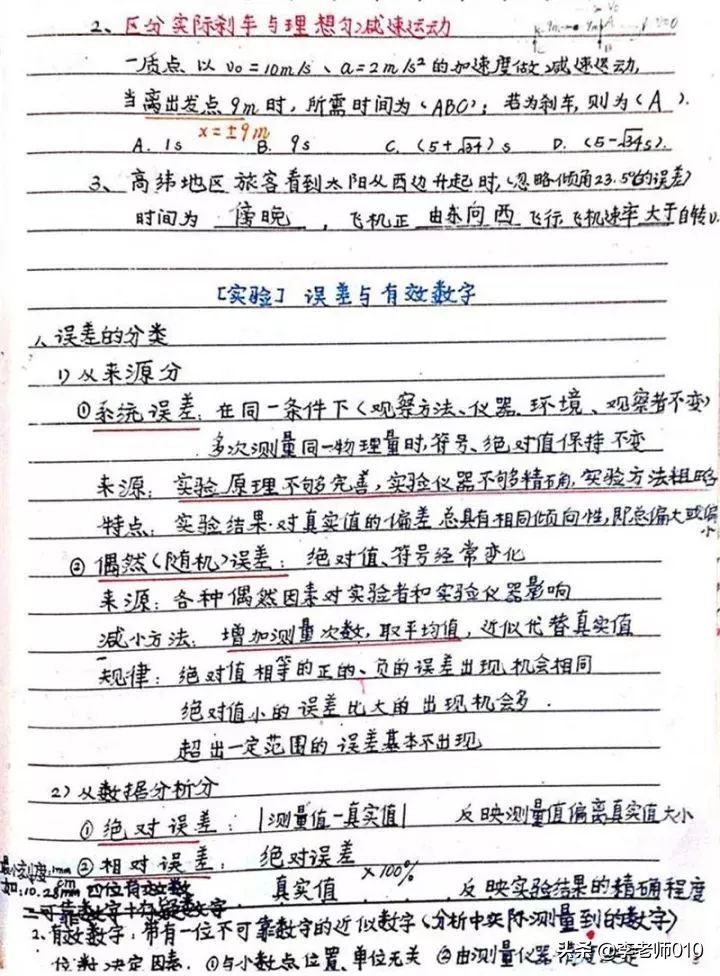 2、区分实际刹车与理想匀减速运动
一质点以 v₀=10m/s、a=2m/s²的加速度做减速运动,
当离出发点9m时, 所需时间为(ABC); 若为刹车,则为(A).
x=±9m
A. 1s B. 9s C. (5+√34)s D. (5-√34s).
3、高纬地区旅客看到太阳从西边升起时,(忽略倾角23.5°的误差)
时间为 傍晚 , 飞机正 由东向西 飞行,飞机速率大于自转v.
[实验] 误差与有效数字
1、误差的分类
1)从来源分
①系统误差: 在同一条件下(观察方法、仪器、环境、观察者不变)
多次测量同一物理量时,符号、绝对值保持不变
来源: 实验原理不够完善,实验仪器不够精确,实验方法粗略
特点: 实验结果对真实值的偏差总具有相同倾向性,即总偏大或偏小
②偶然(随机)误差: 绝对值、符号经常变化
来源: 各种偶然因素对实验者和实验仪器影响
减小方法: 增加测量次数,取平均值,近似代替真实值
规律: 绝对值相等的正的、负的误差出现机会相同
绝对值小的误差比大的出现机会多.
超出一定范围的误差基本不出现
2)从数据分析分
①绝对误差: |测量值-真实值| 反映测量值偏离真实值大小
②相对误差: 绝对误差
真实值 ×100% 反映实验结果的精确程度
最小刻度:mm
如:10.28cm 四位有效数
=可靠数字+存疑数字
2、有效数字: 带有一位不可靠数字的近似数字(分析中实际测量到的数字)
位数决定因素: ①与小数点位置、单位无关 ②由测量仪器
头条@李老师010